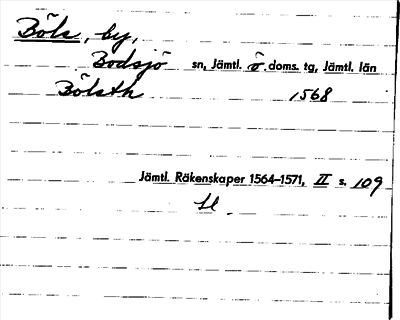 Böle, by,
Bodsjö sn, Jämtl. ö. doms. tg, Jämtl. län
Bölsth 1568
Jämtl. Räkenskaper 1564-1571, II s. 109